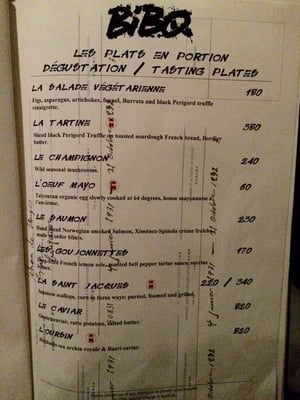 BiBO
LES PLATS EN PORTION
DÉGUSTATION / TASTING PLATES
LA SALADE VÉGÉTARIENNE 180
Figs, asparagus, artichokes, fennel, Burrata and black Perigord truffle
vinaigrette.
LA TARTINE 350
Sliced black Perigord Truffle on toasted sourdough French bread, Bordier
butter.
LE CHAMPIGNON 240
Wild seasonal mushrooms.
L'OEUF MAYO 60
Taiyouran organic egg slowly cooked at 64 degrees, house mayonnaise
l'ancienne.
LE SAUMON 230
Norwegian smoked Salmon, Ximénez-Spinola crème fraîche,
order blinis.
LES GOUJONNETTES 170
French lemon sole, roasted bell pepper tartar sauce,
LA SAINT JACQUES 220 / 340
Japanese scallops, corn in three ways: puréed, foamed and grilled.
LE CAVIAR 520
caviar, ratte potatoes, salted butter.
L'OURSIN 520
sea urchin royale & Baeri caviar.